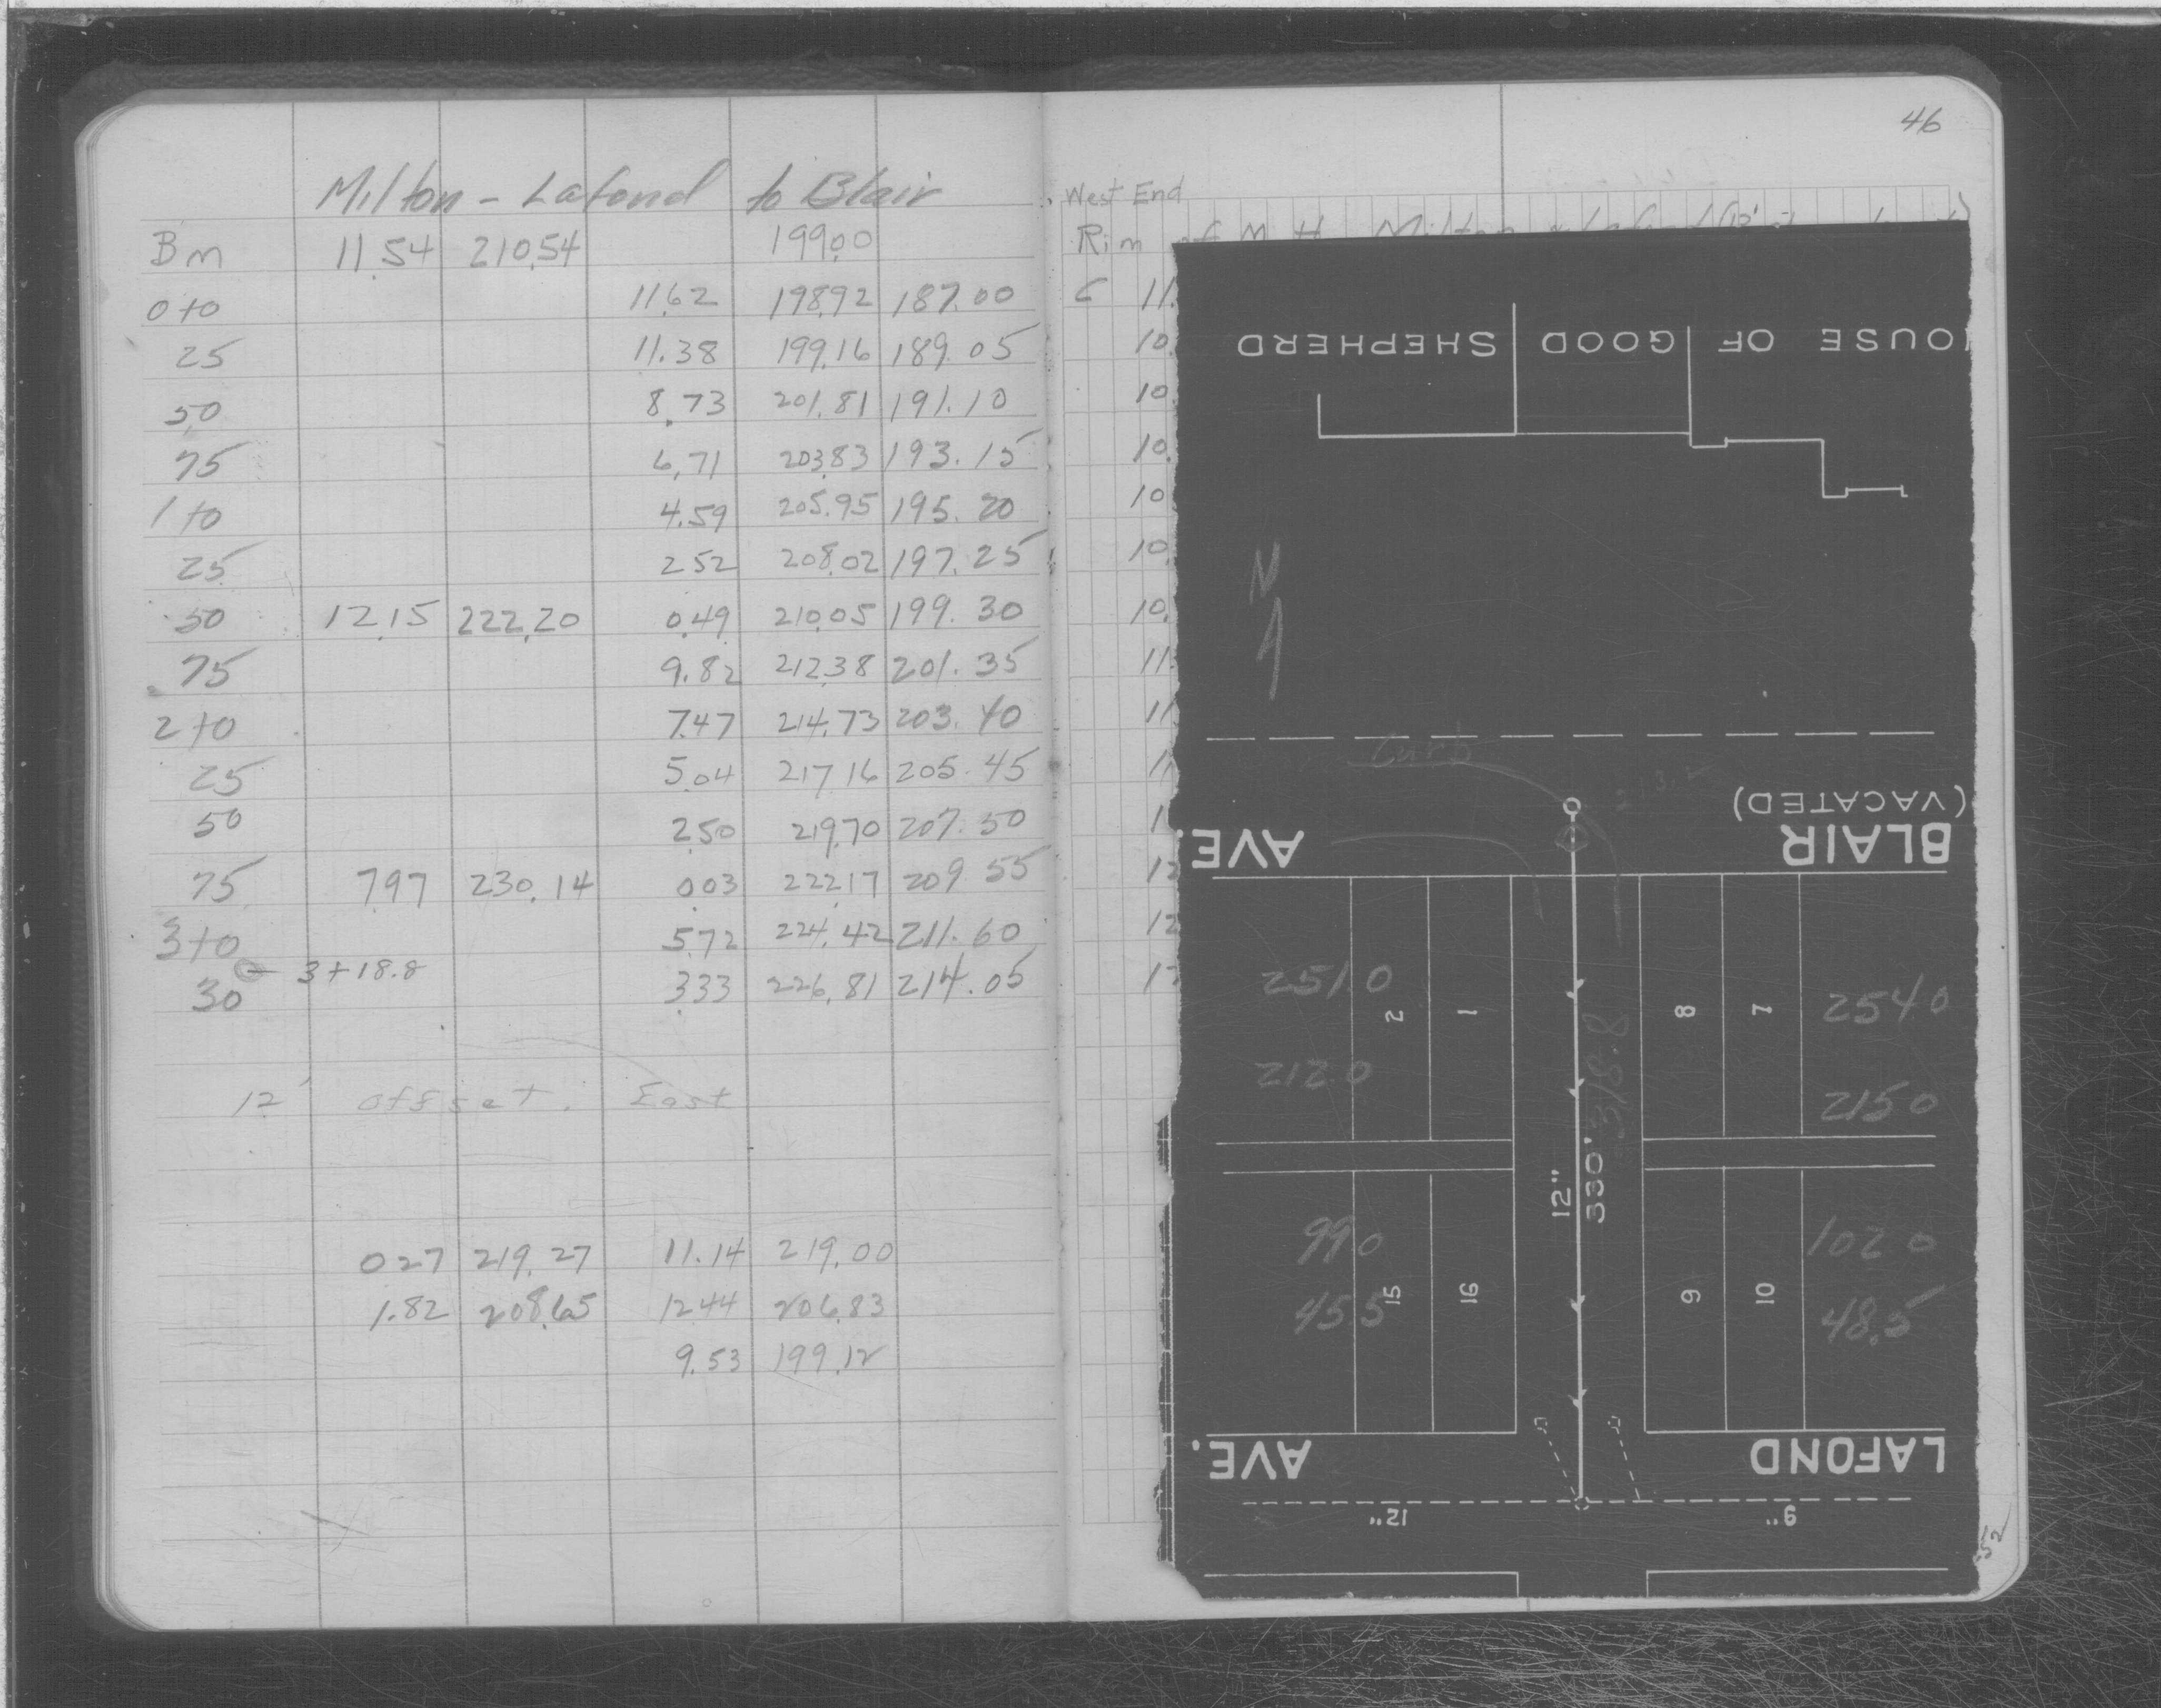 46
Milton - Lafond to Blair
Bm 11.54 210.54 199.00
0+0 11.62 198.92 187.00
25 11.38 199.16 189.05
50 8.73 201.81 191.10
75 6.71 203.83 193.15
1+0 4.59 205.95 195.20
25 2.52 208.02 197.25
50 12.15 222.20 0.49 210.05 199.30
75 9.82 212.38 201.35
2+0 7.47 214.73 203.40
25 5.04 217.16 205.45
50 2.50 219.70 207.50
75 7.97 230.14 0.03 222.17 209.55
3+0 5.72 224.42 211.60
3+18.8
30 3.33 226.81 214.05
12' offset. East
0.27 219.27 11.14 219.00
1.82 208.65 12.44 206.83
9.53 199.12
West End
Rim of M.H. Milton & Lafond
C 11.
10.
10.
10.
10
10.
10.
11.
11
12
12
HOUSE OF GOOD SHEPHERD
N
Curb
BLAIR AVE.
(VACATED)
251.0 2 1 8 7 254.0
212.0 215.0
318.8
12"
330'
99.0 102.0
45.5 15 16 9 10 48.5
LAFOND AVE.
12" 9"
52